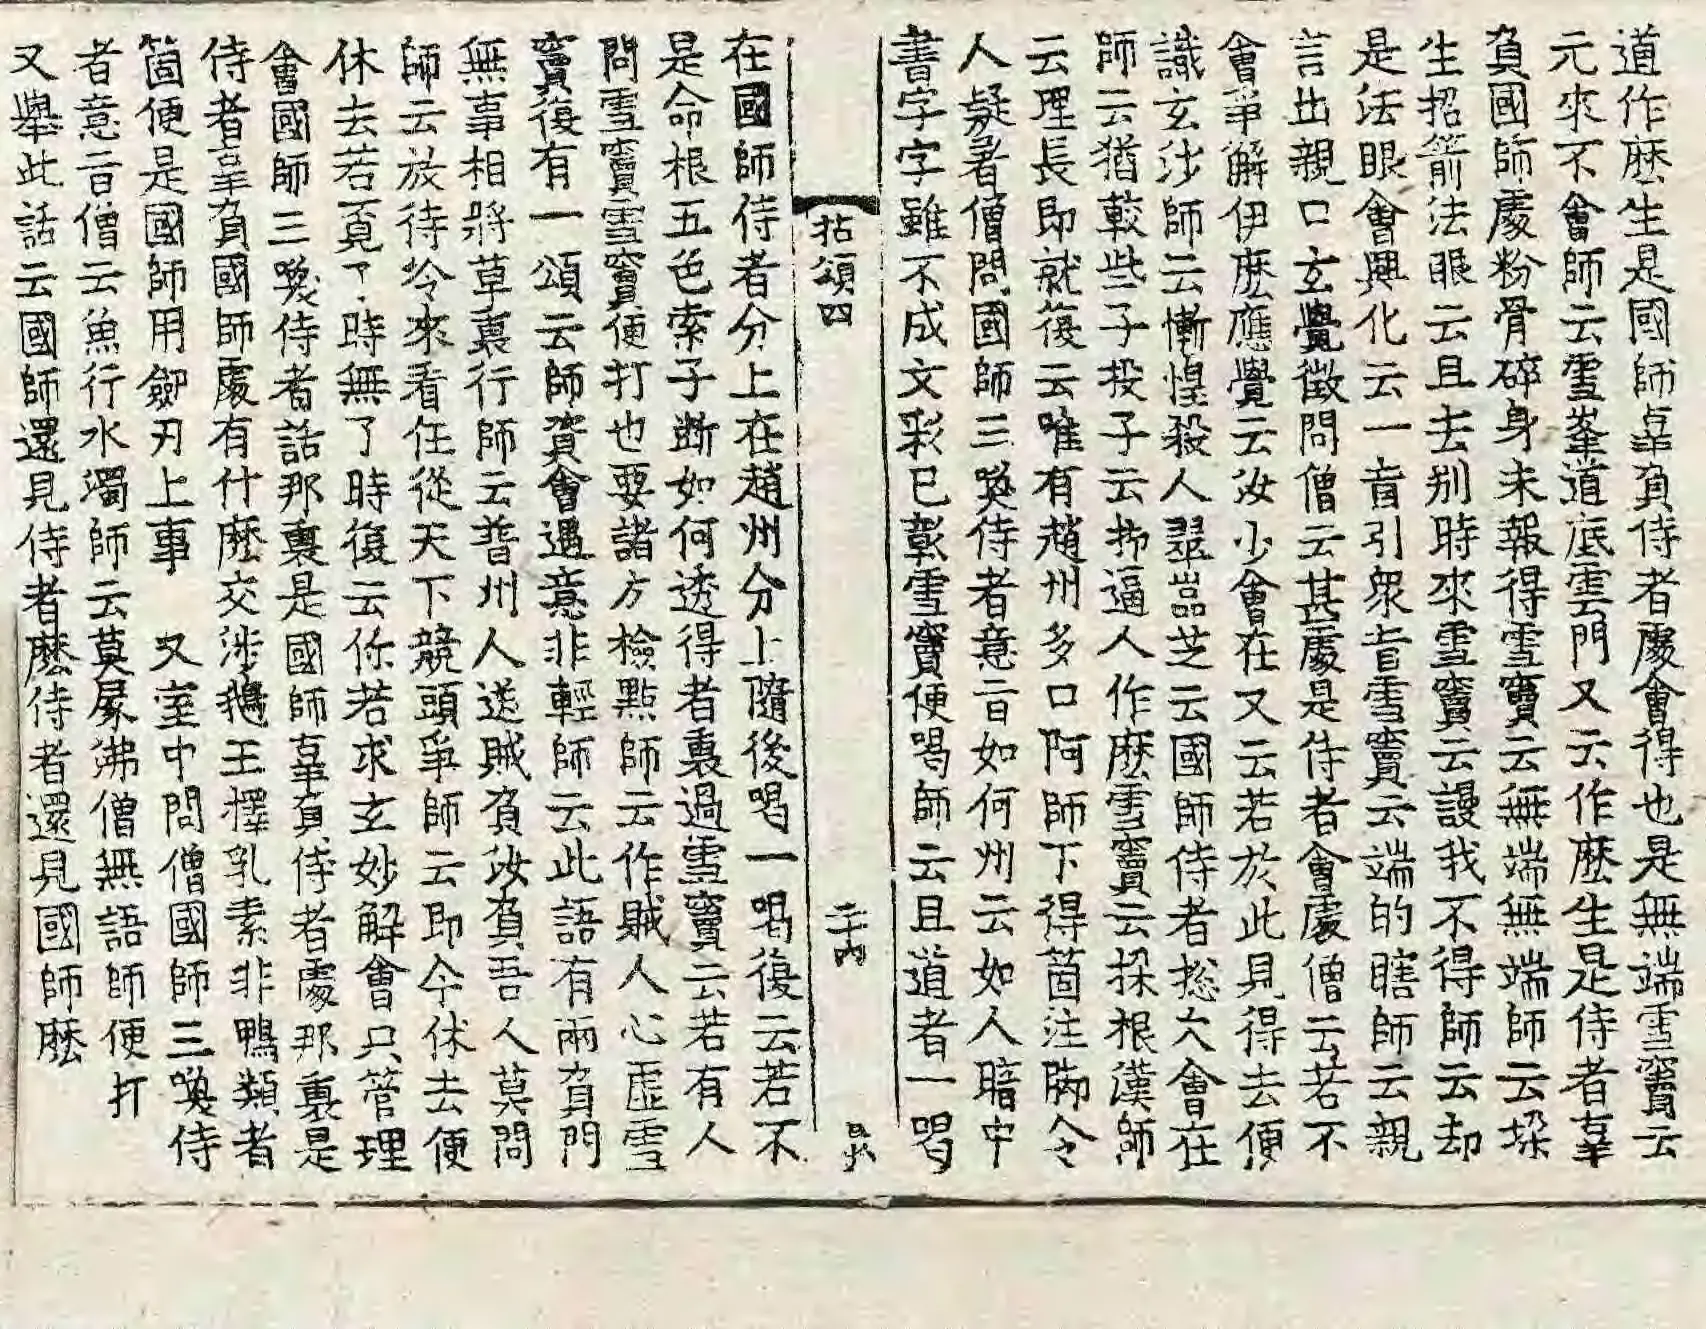 道作麽生是國師辜負侍者處會得也是無端雪竇云
元來不會師云雪峯道底雲門又云作麽生是侍者辜
負國師處粉骨碎身未報得雪竇云無端無端師云垜
生招箭法眼云且去别時來雪竇云謾我不得師云却
是法眼會興化云一盲引衆盲雪竇云端的瞎師云親
言出親口玄覺徵問僧云甚處是侍者會處僧云若不
會爭解伊麽應覺云汝少會在又云若於此見得去便
識玄沙師云慚惶殺人翠嵓芝云國師侍者揔欠會在
師云猶較些子投子云抑逼人作麽雪竇云垜根漢師
云理長即就復云唯有趙州多口阿師下得箇注脚令
人疑着僧問國師三喚侍者意旨如何州云如人暗中
書字字雖不成文彩已彰雪竇便喝師云且道者一喝
拈頌四
二十六
在國師侍者分上在趙州分上隨後喝一喝復云若不
是命根五色索子断如何透得者裏過雪竇云若有人
問雪竇雪竇便打也要諸方檢點師云作賊人心虛雪
竇復有一頌云師資會遇意非輕師云此語有兩負門
無事相將草裏行師云普州人送賊負汝負吾人莫問
師云放待冷來看任從天下競頭爭師云即今休去便
休去若覔了時無了時復云你若求玄妙解會只管理
會國師三喚侍者話那裏是國師辜負侍者處那裏是
侍者辜負國師處有什麽交涉鵝王擇乳素非鴨類者
箇便是國師用劒刃上事 又室中問僧國師三喚侍
者意旨僧云魚行水濁師云莫屎沸僧無語師便打
又舉此話云國師還見侍者麽侍者還見國師麽